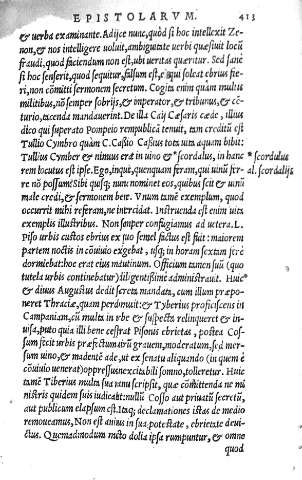 EPISTOLARVM. 413
& uerba examinante. Adijce nunc, quòd si hoc intellexit Ze-
non, & nos intelligere uoluit, ambiguitate uerbi quæsiuit locũ
fraudi, quod faciendum non est, ubi ueritas quæritur. Sed sanè
si hoc senserit, quod sequitur, falsum est, ei qui soleat ebrius fie-
ri, non cõmitti sermonem secretum. Cogita enim quàm multis
militibus, nõ semper sobrijs, & imperator, & tribunus, & cẽ-
turio, tacenda mandauerint. De illa Caij Cæsaris cæde, illius
dico qui superato Pompeio rempublicã tenuit, tam creditũ est
Tullio Cymbro quàm C. Caßio Caßius tota uita aquam bibit:
Tullius Cymber & nimius erat in uino & *scordalus, in hanc *scordulus
rem locutus est ipse. Ego, inquit, quenquam feram, qui uinũ fer- al. scordalijs
re nõ possum? Sibi quisq; nunc nominet eos, quibus scit & uinũ
male credi, & sermonem bene. Vnum tamẽ exemplum, quod
occurrit mihi referam, ne intercidat. Instruenda est enim uita
exemplis illustribus. Non semper confugiamus ad uetera. L.
Piso urbis custos ebrius ex quo semel factus est fuit: maiorem
partem noctis in cõuiuio exigebat, usq; in horam sextam ferè
dormiebat: hoc erat eius matutinum. Officium tamen suũ (quo
tutela urbis continebatur) diligentißimè administrauit. Huic
& diuus Augustus dedit secreta mandata, cum illum præpo-
neret Thraciæ, quam perdomuit: & Tyberius proficiscens in
Campaniam, cũ multa in vrbe & suspecta relinqueret & in-
uisa, puto quia illi bene cesserat Pisonis ebrietas, postea Cos-
sum fecit urbis præfectum: uirũ grauem, moderatum, sed mer-
sum uino, & madentẽ adeò, ut ex senatu aliquando (in quem è
cõuiuio uenerat) oppressus inexcitabili somno, tolleretur. Huic
tamẽ Tiberius multa sua manu scripsit, quæ cõmittenda ne mi
nistris quidem suis iudicabat: nullũ Cosso aut priuatũ secretũ,
aut publicum elapsum est. Itaq; declamationes istas de medio
remoueamus, Non est animus in sua potestate, ebrietate deui-
ctus. Quemadmodum musto dolia ipsa rumpuntur, & omne
quod